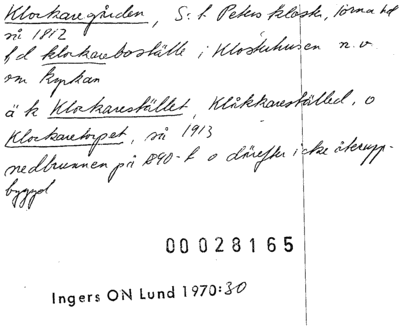 Klockaregården, S:t Peters kloster, Torna hd
så 1812
f d klockareboställe i Klosterhusen n.v.
om kyrkan
ä k Klockarestället, Klåkkareställed, o
Klockaretorpet, så 1913
nedbrunnen på 1890-t o därefter icke återupp-
byggd
00028165
Ingers ON Lund 1970:30